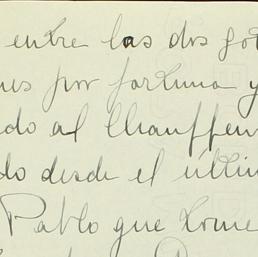 entre las dos
por fortuna y
al Chauffeu
do desde el últi
Pablo que tome